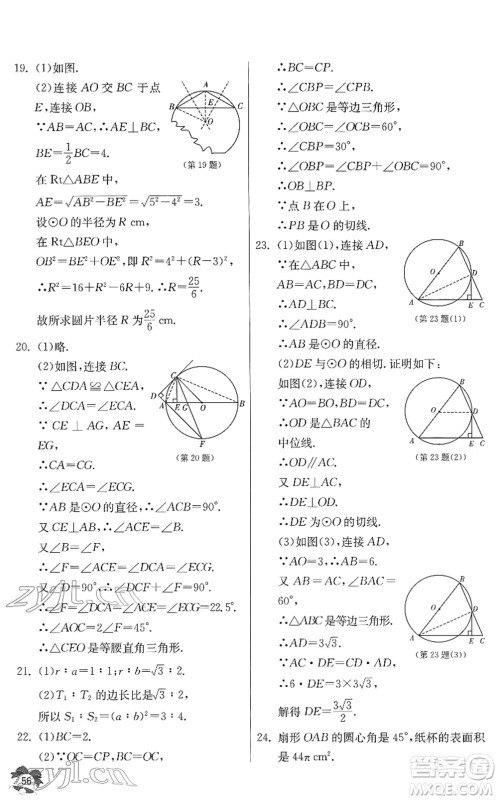 19. (1)如图.
(2)连接 AO 交 BC 于点
E,连接 OB,
∵AB=AC,∴AE⊥BC,
BE=1/2 BC=4.
(第 19 题)
在 Rt△ABE 中,
AE=√(AB²−BE²)=√(5²−4²)=3.
设⊙O 的半径为 R cm,
在 Rt△BEO 中,
OB²=BE²+OE²,即 R²=4²+(R−3)²,
∴R²=16+R²−6R+9,∴R=25/6.
故所求圆片半径 R 为 25/6 cm.
20. (1)略.
(2)如图,连接 BC.
∵△CDA≌△CEA,
∴∠DCA=∠ECA.
∵CE⊥AG,AE=EG,
∴CA=CG.
(第 20 题)
∴∠ECA=∠ECG.
∵AB 是⊙O 的直径,∴∠ACB=90°.
又 CE⊥AB,∴∠ACE=∠B.
又∠B=∠F,∴∠F=∠ACE=∠DCA=∠ECG.
又∠D=90°,∴∠DCF+∠F=90°.
∴∠F=∠DCA=∠ACE=∠ECG=22.5°.
∴∠AOC=2∠F=45°.
∴△CEO 是等腰直角三角形.
21. (1)r∶a=1∶1;r∶b=√3∶2.
(2)T₁∶T₂ 的边长比是√3∶2,
所以 S₁∶S₂=(a∶b)²=3∶4.
22. (1)BC=2.
(2)∵OC=CP,BC=OC,
∴BC=CP.
∴∠CBP=∠CPB.
∵△OBC 是等边三角形,
∴∠OBC=∠OCB=60°,
∴∠CBP=30°.
∴∠OBP=∠CBP+∠OBC=90°.
∴OB⊥BP.
∵点 B 在⊙O 上,
∴PB 是⊙O 的切线.
23. (1)如图(1),连接 AD,
∵在△ABC 中,
AB=AC,BD=DC,
∴AD⊥BC.
∴∠ADB=90°.
∴点 D 在⊙O 上.
(第 23 题(1))
(2)DE 与⊙O 的相切. 证明如下:
如图(2),连接 OD,
∵AO=BO,BD=DC,
∴OD 是△BAC 的
中位线.
∴OD∥AC.
(第 23 题(2))
又 DE⊥AC,
∴DE⊥OD,
∴DE 是⊙O 的切线.
(3)如图(3),连接 AD,
∵AO=3,∴AB=6.
又 AB=AC,∠BAC=60°,
∴△ABC 是等边三角形.
∴AD=3√3.
∵AC·DE=CD·AD,
(第 23 题(3))
∴6·DE=3×3√3.
解得 DE=3√3/2.
24. 扇形 OAB 的圆心角是 45°,纸杯的表面积
是 44π cm².
56
zyjl.cn
zyjl.cn
答案圈
MXQE.COM